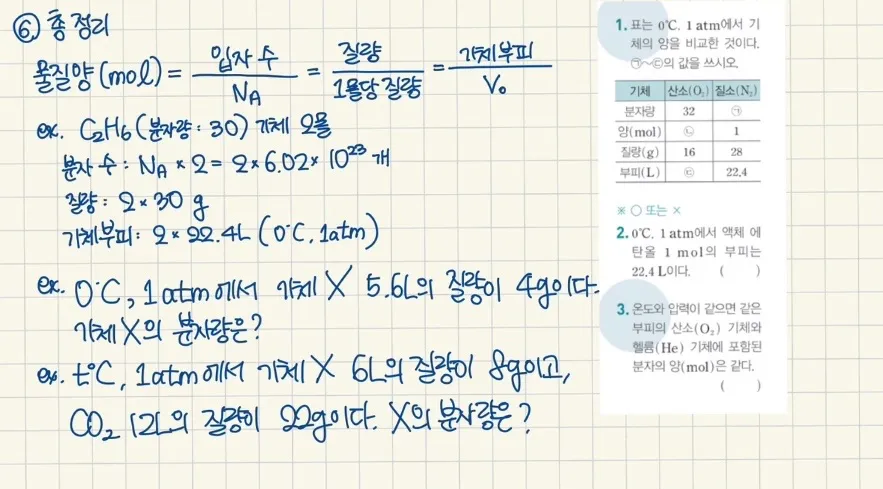 ⑥ 총 정리
물질양 (mol) = 입자 수 / NA = 질량 / 1몰당 질량 = 기체부피 / V₀
ex. C₂H₆ (분자량 : 30) 기체 2몰
분자 수 : NA × 2 = 2 × 6.02 × 10²³ 개
질량 : 2 × 30 g
기체부피 : 2 × 22.4L (0°C, 1atm)
ex. 0°C, 1atm에서 기체 X 5.6L의 질량이 4g이다.
기체 X의 분자량은?
ex. t°C, 1atm에서 기체 X 6L의 질량이 8g이고,
CO₂ 12L의 질량이 22g이다. X의 분자량은?
1. 표는 0℃, 1 atm에서 기
체의 양을 비교한 것이다.
㉠~㉢의 값을 쓰시오.
기체 산소(O₂) 질소(N₂)
분자량 32 ㉠
양(mol) ㉡ 1
질량(g) 16 28
부피(L) ㉢ 22.4
※ ○ 또는 ×
2. 0℃, 1 atm에서 액체 에
탄올 1 mol의 부피는
22.4 L이다. ( )
3. 온도와 압력이 같으면 같은
부피의 산소(O₂) 기체와
헬륨(He) 기체에 포함된
분자의 양(mol)은 같다.
( )